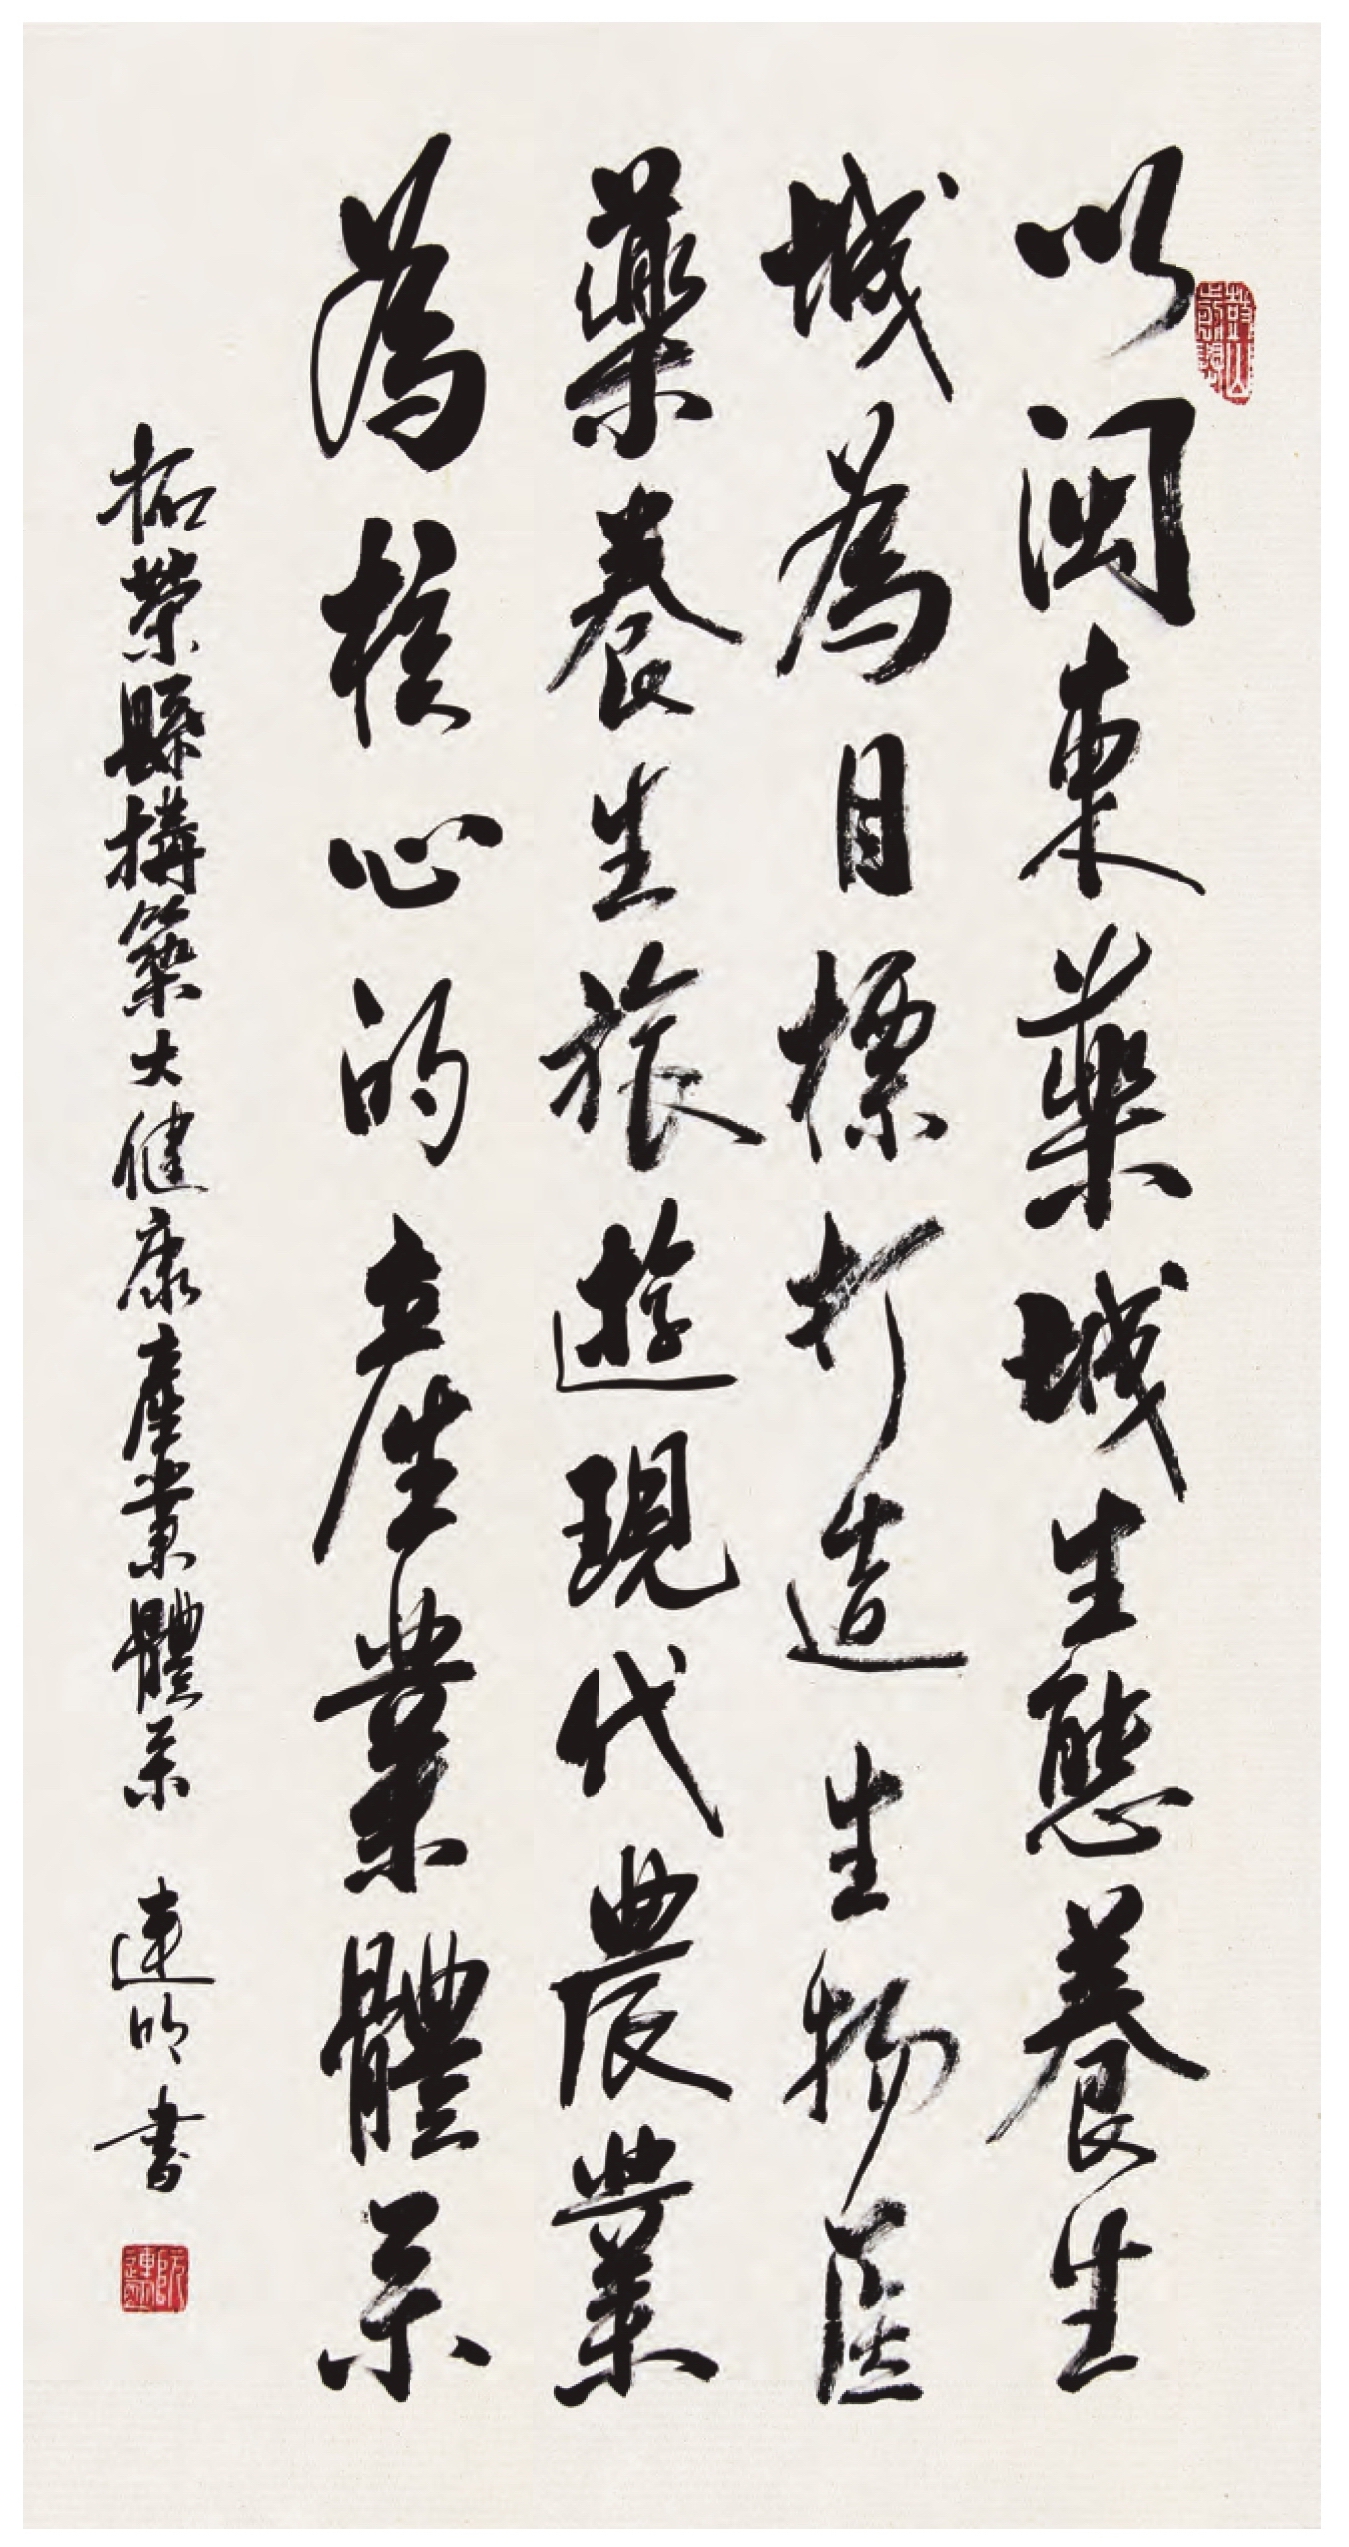 以閩東藥城生態養生
城為目標打造生物医
藥養生旅遊現代農業
為核心的產業體系
柘榮縣構築大健康產業體系 連明書